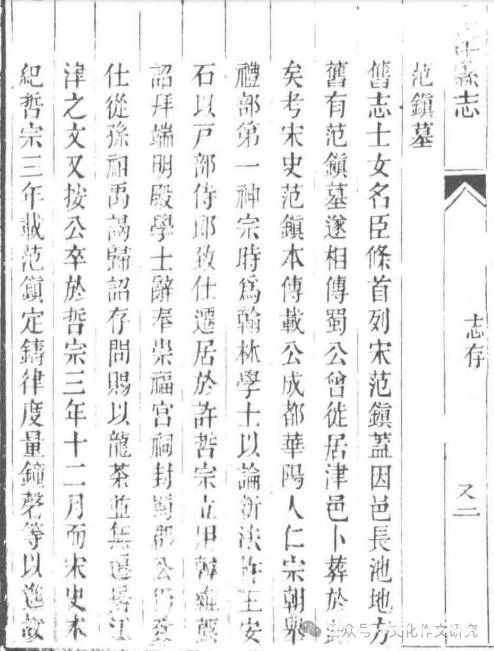 縣志
志存
又二
范鎮墓
舊志士女名臣條首列宋范鎮蓋因邑長池地方
舊有范鎮墓遂相傳蜀公曾徙居津邑卜葬於
矣考宋史范鎮本傳載公成都華陽人仁宗朝舉
禮部第一神宗時爲翰林學士以論新法忤王安
石以戸部侍郎致仕遷居於許哲宗立用韓維薦
詔拜端明殿學士辭奉崇福宮祠封蜀郡公
仕從孫祖禹謁歸詔存問賜以龍茶並無遷居江
津之文又按公卒於哲宗三年十二月而宋史本
紀哲宗三年載范鎮定鑄律度量鐘磬等以進故
公众号 文化作文研究